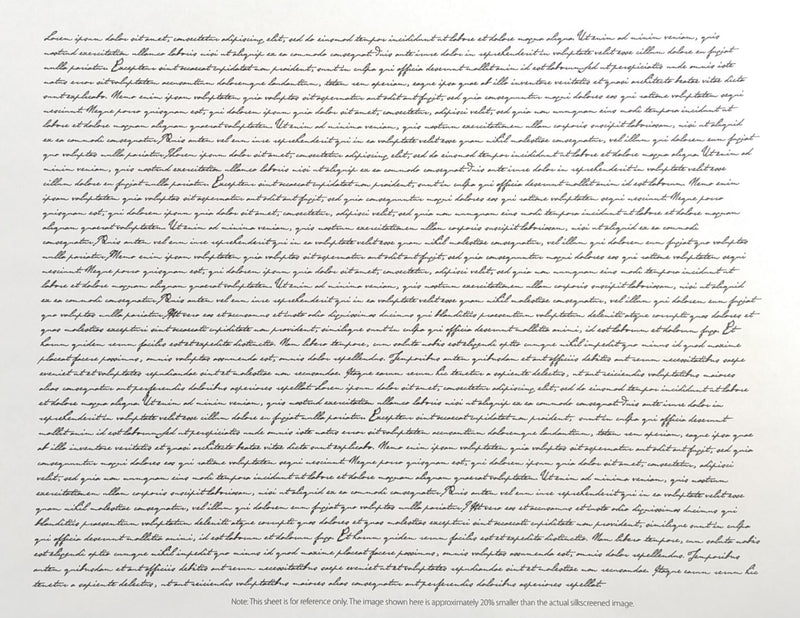 Lorem ipsum dolor sit amet, consectetur adipiscing elit, sed do eiusmod tempor incididunt ut labore et dolore magna aliqua Ut enim ad minim veniam, quis
nostrud exercitation ullamco laboris nisi ut aliquip ex ea commodo consequat Duis aute irure dolor in reprehenderit in voluptate velit esse cillum dolore eu fugiat
nulla pariatur. Excepteur sint occaecat cupidatat non proident, sunt in culpa qui officia deserunt mollit anim id est laborum Sed ut perspiciatis unde omnis iste
natus error sit voluptatem accusantium doloremque laudantium, totam rem aperiam, eaque ipsa quae ab illo inventore veritatis et quasi architecto beatae vitae dicta
sunt explicabo. Nemo enim ipsam voluptatem quia voluptas sit aspernatur aut odit aut fugit, sed quia consequuntur magni dolores eos qui ratione voluptatem sequi
nesciunt Neque porro quisquam est, qui dolorem ipsum quia dolor sit amet, consectetur, adipisci velit, sed quia non numquam eius modi tempora incidunt ut
labore et dolore magnam aliquam quaerat voluptatem Ut enim ad minima veniam, quis nostrum exercitationem ullam corporis suscipit laboriosam, nisi ut aliquid
ex ea commodi consequatur Quis autem vel eum iure reprehenderit qui in ea voluptate velit esse quam nihil molestiae consequatur, vel illum qui dolorem eum fugiat
quo voluptas nulla pariatur Lorem ipsum dolor sit amet, consectetur adipiscing elit, sed do eiusmod tempor incididunt ut labore et dolore magna aliqua Ut enim ad
minim veniam, quis nostrud exercitation ullamco laboris nisi ut aliquip ex ea commodo consequat Duis aute irure dolor in reprehenderit in voluptate velit esse
cillum dolore eu fugiat nulla pariatur Excepteur sint occaecat cupidatat non proident, sunt in culpa qui officia deserunt mollit anim id est laborum Nemo enim
ipsam voluptatem quia voluptas sit aspernatur aut odit aut fugit, sed quia consequuntur magni dolores eos qui ratione voluptatem sequi nesciunt Neque porro
quisquam est, qui dolorem ipsum quia dolor sit amet, consectetur, adipisci velit, sed quia non numquam eius modi tempora incidunt ut labore et dolore magnam
aliquam quaerat voluptatem Ut enim ad minima veniam, quis nostrum exercitationem ullam corporis suscipit laboriosam, nisi ut aliquid ex ea commodi
consequatur Quis autem vel eum iure reprehenderit qui in ea voluptate velit esse quam nihil molestiae consequatur, vel illum qui dolorem eum fugiat quo voluptas
nulla pariatur Nemo enim ipsam voluptatem quia voluptas sit aspernatur aut odit aut fugit, sed quia consequuntur magni dolores eos qui ratione voluptatem sequi
nesciunt Neque porro quisquam est, qui dolorem ipsum quia dolor sit amet, consectetur, adipisci velit, sed quia non numquam eius modi tempora incidunt ut
labore et dolore magnam aliquam quaerat voluptatem Ut enim ad minima veniam, quis nostrum exercitationem ullam corporis suscipit laboriosam, nisi ut aliquid
ex ea commodi consequatur Quis autem vel eum iure reprehenderit qui in ea voluptate velit esse quam nihil molestiae consequatur, vel illum qui dolorem eum fugiat
quo voluptas nulla pariatur At vero eos et accusamus et iusto odio dignissimos ducimus qui blanditiis praesentium voluptatum deleniti atque corrupti quos dolores et
quas molestias excepturi sint occaecati cupiditate non provident, similique sunt in culpa qui officia deserunt mollitia animi, id est laborum et dolorum fuga Et
harum quidem rerum facilis est et expedita distinctio. Nam libero tempore, cum soluta nobis est eligendi optio cumque nihil impedit quo minus id quod maxime
placeat facere possimus, omnis voluptas assumenda est, omnis dolor repellendus. Temporibus autem quibusdam et aut officiis debitis aut rerum necessitatibus saepe
eveniet ut et voluptates repudiandae sint et molestiae non recusandae. Itaque earum rerum hic tenetur a sapiente delectus, ut aut reiciendis voluptatibus maiores
alias consequatur aut perferendis doloribus asperiores repellat Lorem ipsum dolor sit amet, consectetur adipiscing elit, sed do eiusmod tempor incididunt ut labore
et dolore magna aliqua Ut enim ad minim veniam, quis nostrud exercitation ullamco laboris nisi ut aliquip ex ea commodo consequat Duis aute irure dolor in
reprehenderit in voluptate velit esse cillum dolore eu fugiat nulla pariatur Excepteur sint occaecat cupidatat non proident, sunt in culpa qui officia deserunt
mollit anim id est laborum Sed ut perspiciatis unde omnis iste natus error sit voluptatem accusantium doloremque laudantium, totam rem aperiam, eaque ipsa quae
ab illo inventore veritatis et quasi architecto beatae vitae dicta sunt explicabo. Nemo enim ipsam voluptatem quia voluptas sit aspernatur aut odit aut fugit, sed quia
consequuntur magni dolores eos qui ratione voluptatem sequi nesciunt Neque porro quisquam est, qui dolorem ipsum quia dolor sit amet, consectetur, adipisci
velit, sed quia non numquam eius modi tempora incidunt ut labore et dolore magnam aliquam quaerat voluptatem Ut enim ad minima veniam, quis nostrum
exercitationem ullam corporis suscipit laboriosam, nisi ut aliquid ex ea commodi consequatur Quis autem vel eum iure reprehenderit qui in ea voluptate velit esse
quam nihil molestiae consequatur, vel illum qui dolorem eum fugiat quo voluptas nulla pariatur At vero eos et accusamus et iusto odio dignissimos ducimus qui
blanditiis praesentium voluptatum deleniti atque corrupti quos dolores et quas molestias excepturi sint occaecati cupiditate non provident, similique sunt in culpa
qui officia deserunt mollitia animi, id est laborum et dolorum fuga Et harum quidem rerum facilis est et expedita distinctio. Nam libero tempore, cum soluta nobis
est eligendi optio cumque nihil impedit quo minus id quod maxime placeat facere possimus, omnis voluptas assumenda est, omnis dolor repellendus. Temporibus
autem quibusdam et aut officiis debitis aut rerum necessitatibus saepe eveniet ut et voluptates repudiandae sint et molestiae non recusandae. Itaque earum rerum hic
tenetur a sapiente delectus, ut aut reiciendis voluptatibus maiores alias consequatur aut perferendis doloribus asperiores repellat
Note: This sheet is for reference only. The image shown here is approximately 20% smaller than the actual silkscreened image.